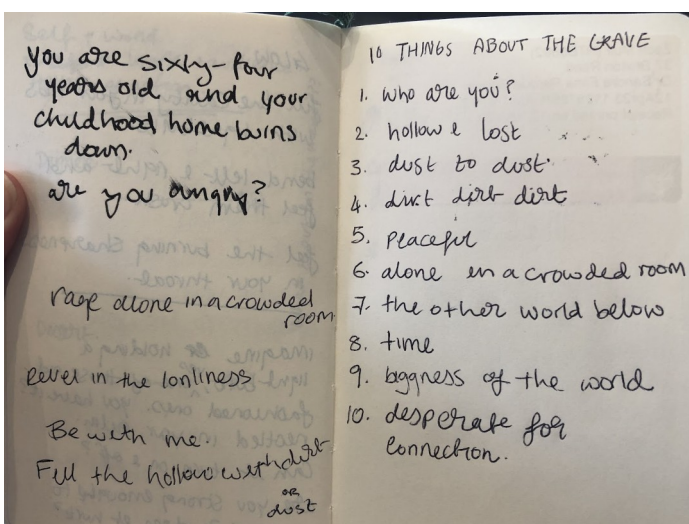 you are sixty-four
years old and your
childhood home burns
down.
are you angry?
rage alone in a crowded
room.
Revel in the lonliness
Be with me.
Fill the hollow with dirt
OR
dust
10 THINGS ABOUT THE GRAVE
1. who are you?
2. hollow & lost
3. dust to dust.
4. dirt dirt dirt
5. Peaceful
6. alone in a crowded room
7. the other world below
8. time
9. biggness of the world
10. desperate for
connection.